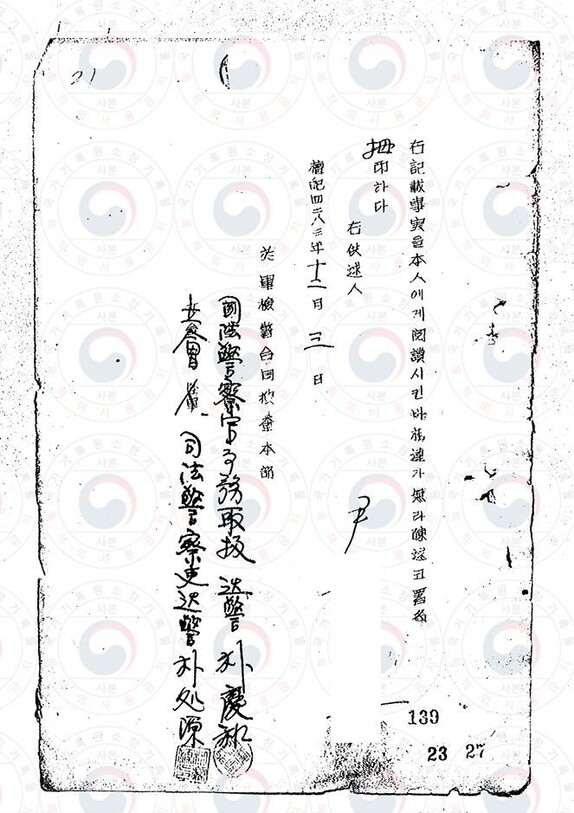 21
右記載事実을本人에게閲讀시킨바相違가無라陳述코署名
拇印하다
右供述人
尹
檀紀四二八三年十二月三日
軍檢警合同搜査本部
司法警察官事務取扱 巡警 朴慶和
立會人 司法警察吏巡警 朴処源
139
23 27